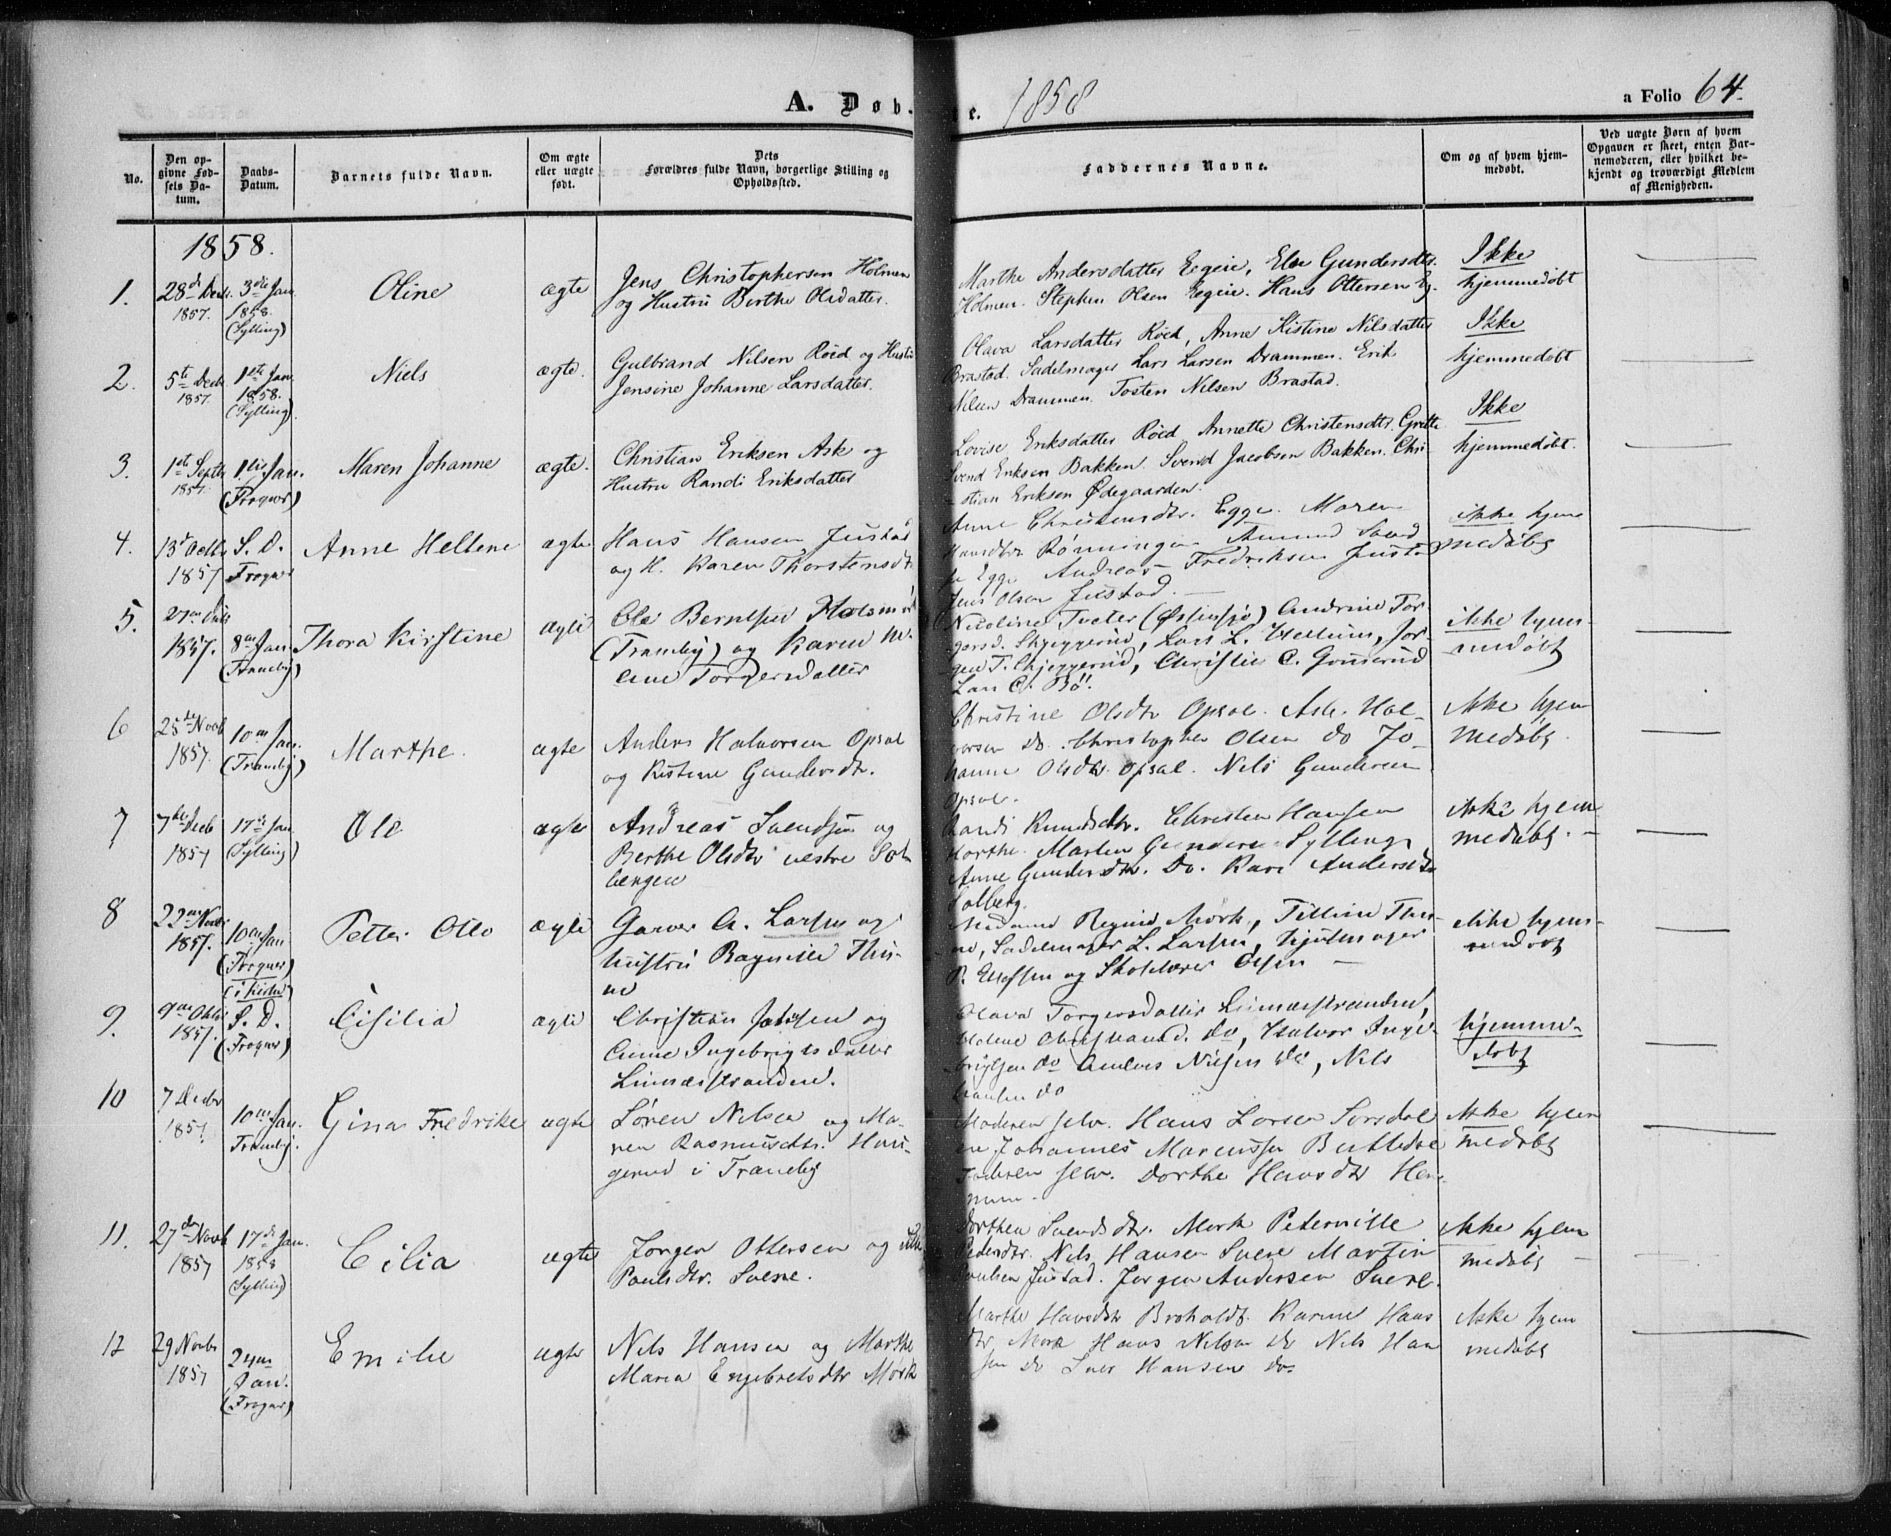 A. Døb. e. 1858 a Folio 64.
No.
Den op-
givne Fød-
sels Da-
tum.
Daabs-
Datum.
Barnets fulde Navn.
Om ægte
eller uægte
født.
Dets
Forældres fulde Navn, borgerlige Stilling og
Opholdssted.
Faddernes Navne.
Om og af hvem hjem-
medøbt.
Ved uægte Børn af hvem
Opgaven er skeet, enten Bar-
nemoderen, eller hvilket be-
kjendt og troværdigt Medlem
af Menigheden.
1858.
1.
28d Decb.
1857.
3die Jan
1858.
(Sylling)
Oline
ægte
Jens Christophersen Holmen
og Hustru Berthe Olsdatter.
Marthe Andersdatter Eegeie, Else Gundersdtr.
Holmen. Stephen Olsen Eegeie. Hans Ottersen Eg.
Ikke
hjemmedøbt
2.
5te Decb
1857.
1ste Jan.
1858.
(Sylling)
Niels
ægte.
Gulbrand Nilsen Röed og Hustru
Jensine Johanne Larsdatter.
Olava Larsdatter Röed, Anne Kistine Nilsdatter
Brastad. Sadelmager Lars Larsen Drammen. Erik
Nilsen Drammen. Tosten Nilsen Brastad.
Ikke
hjemmedøbt
3.
1ste Septb
1857.
1ste Jan.
(Frogner)
Maren Johanne
ægte.
Christian Eriksen Ask og
Hustru Randi Eriksdatter
Lovise Eriksdatter Röed Annette Christensdtr. Grette
Svend Eriksen Bakken. Svend Jacobsen Bakken. Chri
stian Eriksen Ødegaarden.
Ikke
hjemmedøbt.
4.
13d Octb
1857
S. D.
Frogner
Anne Hellene
ægte
Hans Hansen Justad
og H. Karen Thorstensdtr
Anne Christensdtr. Egge. Maren
Hansdtr Rønningen Amund
Egge Andreas Fredriksen Justad
Jens Olsen Justad.
ikke hjem
medøbt
5.
1857.
8de Jan
(Tranby)
Thora Kirstine
ægte
Ole Berntsen
(Tranby) og Karen
Torgersdatter
Nicoline Tveter (Østensjø) Andrine Tor-
gersd. Skjeggerud, Lars L. Hellum, Jör-
gen T. Skjeggerud, Christen C. Gunerud
Lars C. Bö.
ikke hjem-
medøbt
6
25de Novb
1857.
10de Jan.
(Tranby)
Marthe.
ægte
Anders Halvorsen Opsal
og Kistine Gundersdtr.
Christine Olsdtr Opsal. Ask. Hal-
vorsen do. Christopher Olsen do Jo-
hanne Olsdtr. Opsal. Nils Gundersen
Opsal.
ikke hjem
medøbt.
7
7de Decb
1857
17de Jan
(Sylling)
Ole
ægte
Andreas Svendsen og
Berthe Olsdtr vestre Sol-
bergen
Randi Knudsdtr. Christen Hansen
Horthe. Marten Gundersen Sylling
Anne Gundersdtr. Do. Kari Andersdtr
Solberg.
ikke hjem
medøbt.
8
22de Novb
1857.
10de Jan
(Frogner)
(i Kirke)
Petter Otto
ægte
Garver A. Larsen og
Hustru Ragnille Thu-
ne
Madame Mörk, Tilline Thu-
ne, Sadelmager L. Larsen, Hjulmager
P. Ellefsen og Skolelærer Olsen
ikke hjem-
medøbt
9.
9de Octbr
1857.
S. D.
(Frogner)
Cisilia
ægte
Christian Jahnsen og
Anne Ingebrigtsdatter
Linnæsstranden.
Olava Torgersdatter Linnæsstranden,
do, Halvor Inge-
brigtsen do Anders Nilsen do, Nils
Hansen do
hjemme-
døbt
10
7 Decbr
1857.
10de Jan.
Tranby.
Gina Fredrike
ægte
Søren Nilsen og Ma-
ren Rasmusdtr. Hau-
gerud i Tranby
Moderen selv. Hans Larsen Sørsdal
Johannes Marcussen Butledal
Faderen selv. Dorthe Hansdtr Hen-
num.
ikke hjem
medøbt
11.
27de Novb
1857
17de Jan.
1858
(Sylling)
Cilia
ægte
Jørgen Ottersen og
Paulsdtr. Svere.
Dorthea Svendsdtr. Mörk Peternille
Pedersdtr. Nils Hansen Svere Martin
Paulsen Justad. Jørgen Andersen Svere.
ikke hjem
medøbt
12
29 Novbr
1857
24de
Jan.
(Frogner)
Emilie
ægte
Nils Hansen og Marthe
Maria Engebretsdtr Mörk
Marthe Hansdtr Broholdt. Karine Hans
dtr Mörk Hans Nilsen do Nils Han
sen do Iver Hansen do.
ikke hjem
medøbt